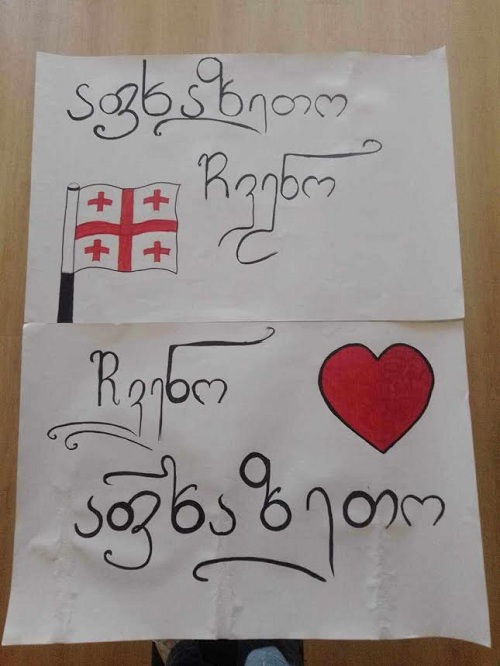 აფხაზეთო
ჩვენო
ჩვენო
აფხაზეთო